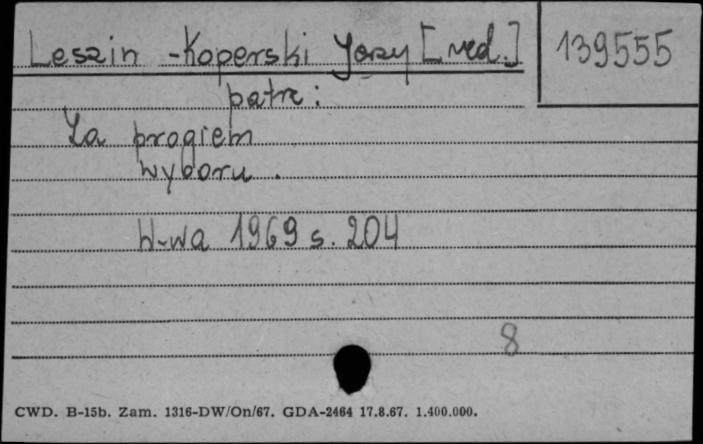 Leszin-Koperski Jerzy [red.]
139555
patrz:
Za progiem
wyboru.
W-wa 1969 s. 204
8
CWD. B-15b. Zam. 1316-DW/On/67. GDA-2464 17.8.67. 1.400.000.